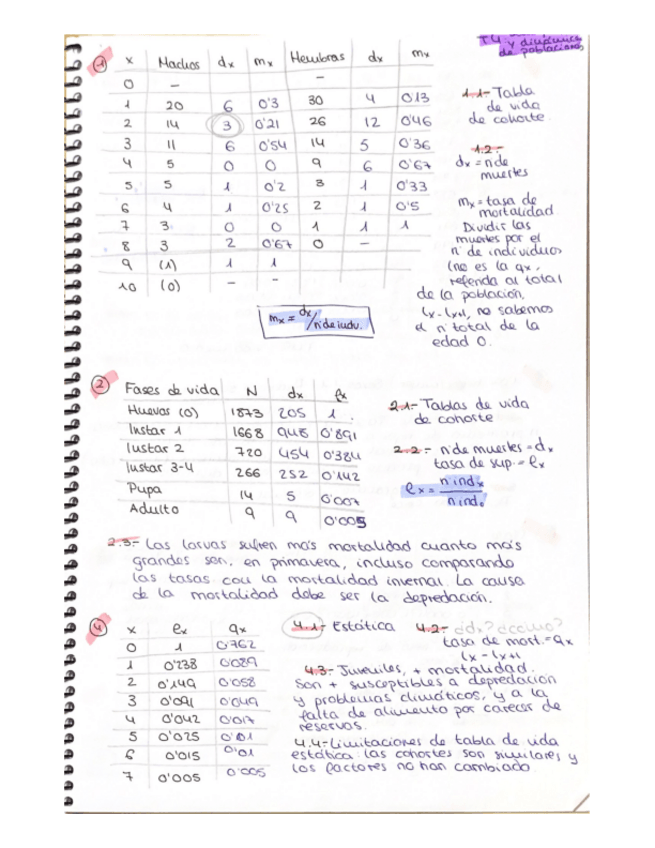 T4
y dinámica
de poblaciones
1 x Machos dx mx Hembras dx mx
0 - -
1 20 6 0'3 30 4 0'13
2 14 3 0'21 26 12 0'46
3 11 6 0'54 14 5 0'36
4 5 0 0 9 6 0'67
5 5 1 0'2 3 1 0'33
6 4 1 0'25 2 1 0'5
7 3 0 0 1 1 1
8 3 2 0'67 0 -
9 (1) 1 1
10 (0) - -
mx = dx/nº de indiv.
1.1.- Tabla
de vida
de cohorte
1.2.-
dx = nº de
muertes
mx = tasa de
mortalidad
Dividir las
muertes por el
nº de individuos
(no es la qx,
referida al total
de la población,
lx - lx+1, no sabemos
el nº total de la
edad 0.
2 Fases de vida N dx lx
Huevos (0) 1873 205 1
Instar 1 1668 948 0'891
Instar 2 720 454 0'384
Instar 3-4 266 252 0'142
Pupa 14 5 0'007
Adulto 9 9 0'005
2.1.- Tablas de vida
de cohorte
2.2.- nº de muertes = dx
tasa de sup. = lx
lx = nº indx / nº ind0
2.3.- Las larvas sufren más mortalidad cuanto más
grandes son, en primavera, incluso comparando
las tasas con la mortalidad invernal. La causa
de la mortalidad debe ser la depredación.
4 x lx qx
0 1 0'762
1 0'238 0'089
2 0'149 0'058
3 0'091 0'049
4 0'042 0'017
5 0'025 0'01
6 0'015 0'01
7 0'005 0'005
4.1.- Estática
4.2.- ¿dx? ¿cómo?
tasa de mort. = qx
lx - lx+1
4.3.- Juveniles, + mortalidad.
Son + susceptibles a depredación
y problemas climáticos, y a la
falta de alimento por carecer de
reservas.
4.4.- Limitaciones de tabla de vida
estática: las cohortes son similares y
los factores no han cambiado